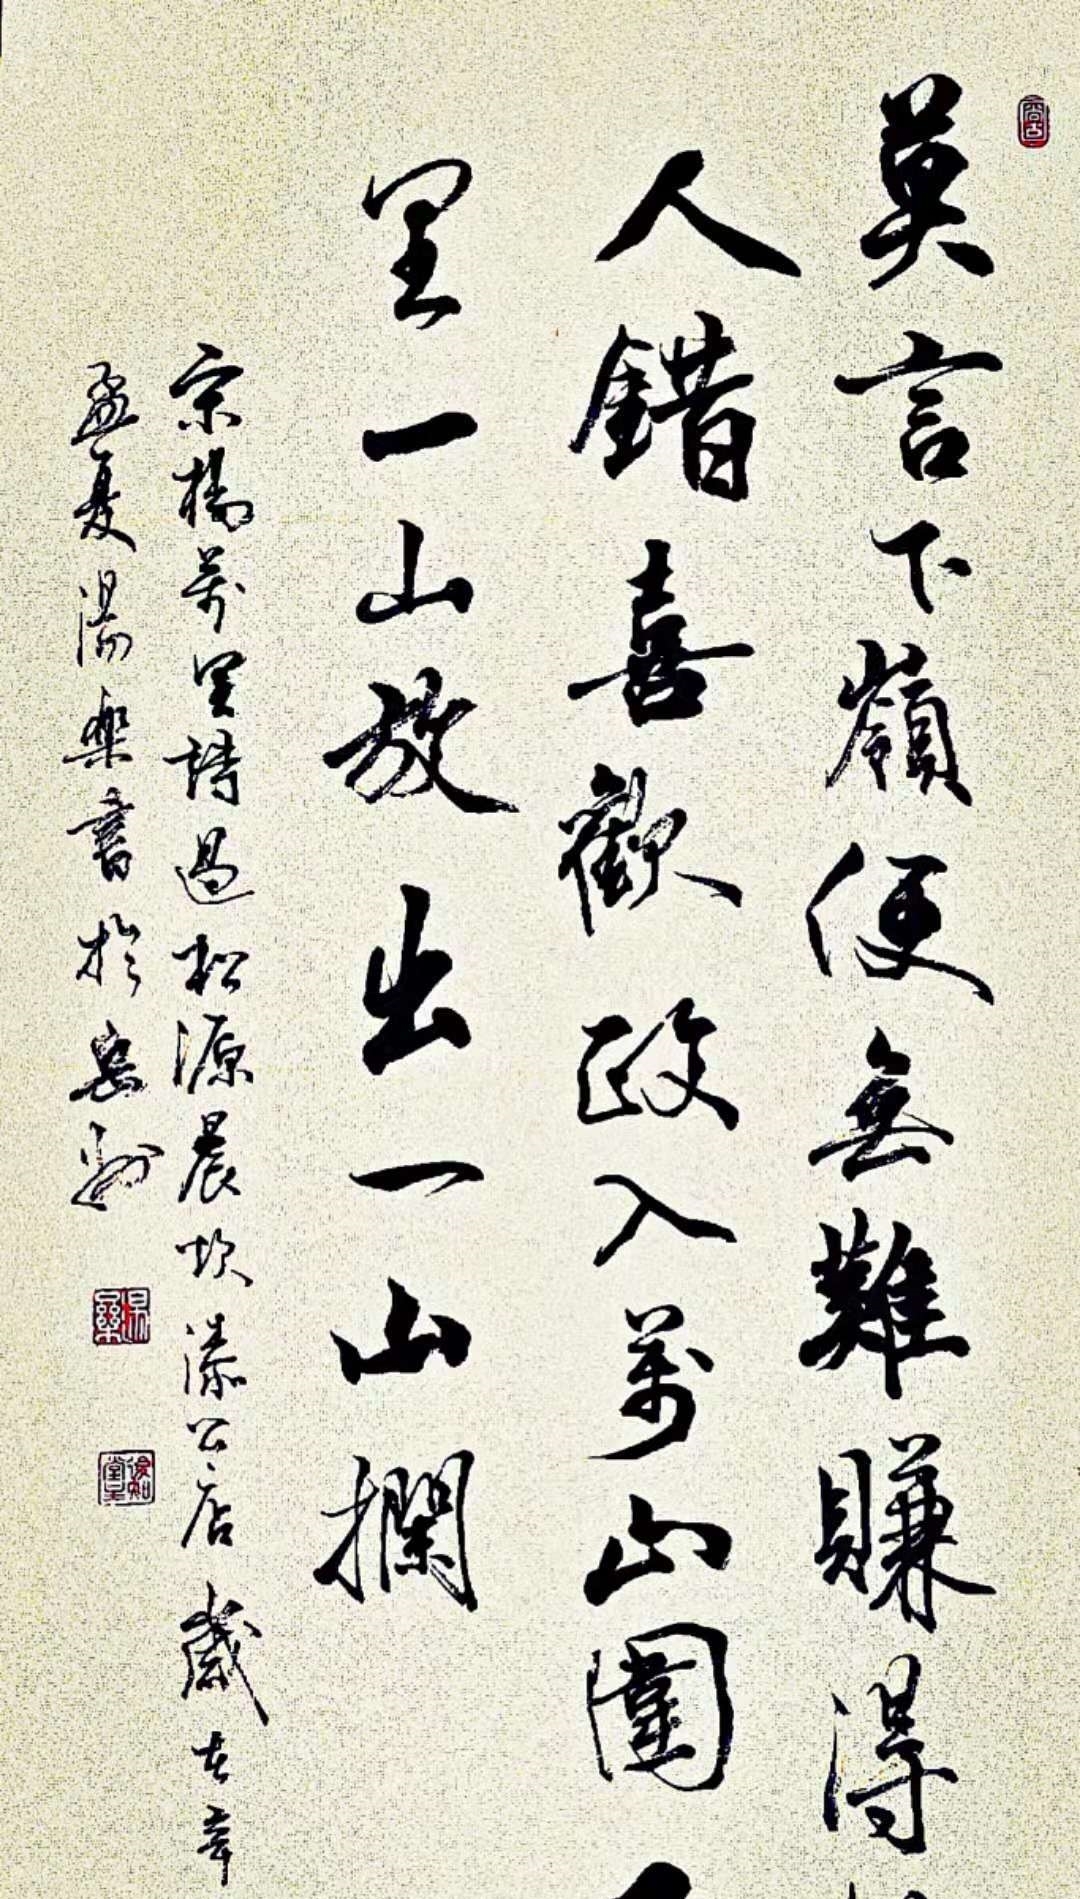 莫言下嶺便無難賺得
人錯喜歡政入萬山圍
里一山放出一山攔
宗楊萬里詩過松源晨炊漆公店歲在辛
孟夏湯樂書於岳州